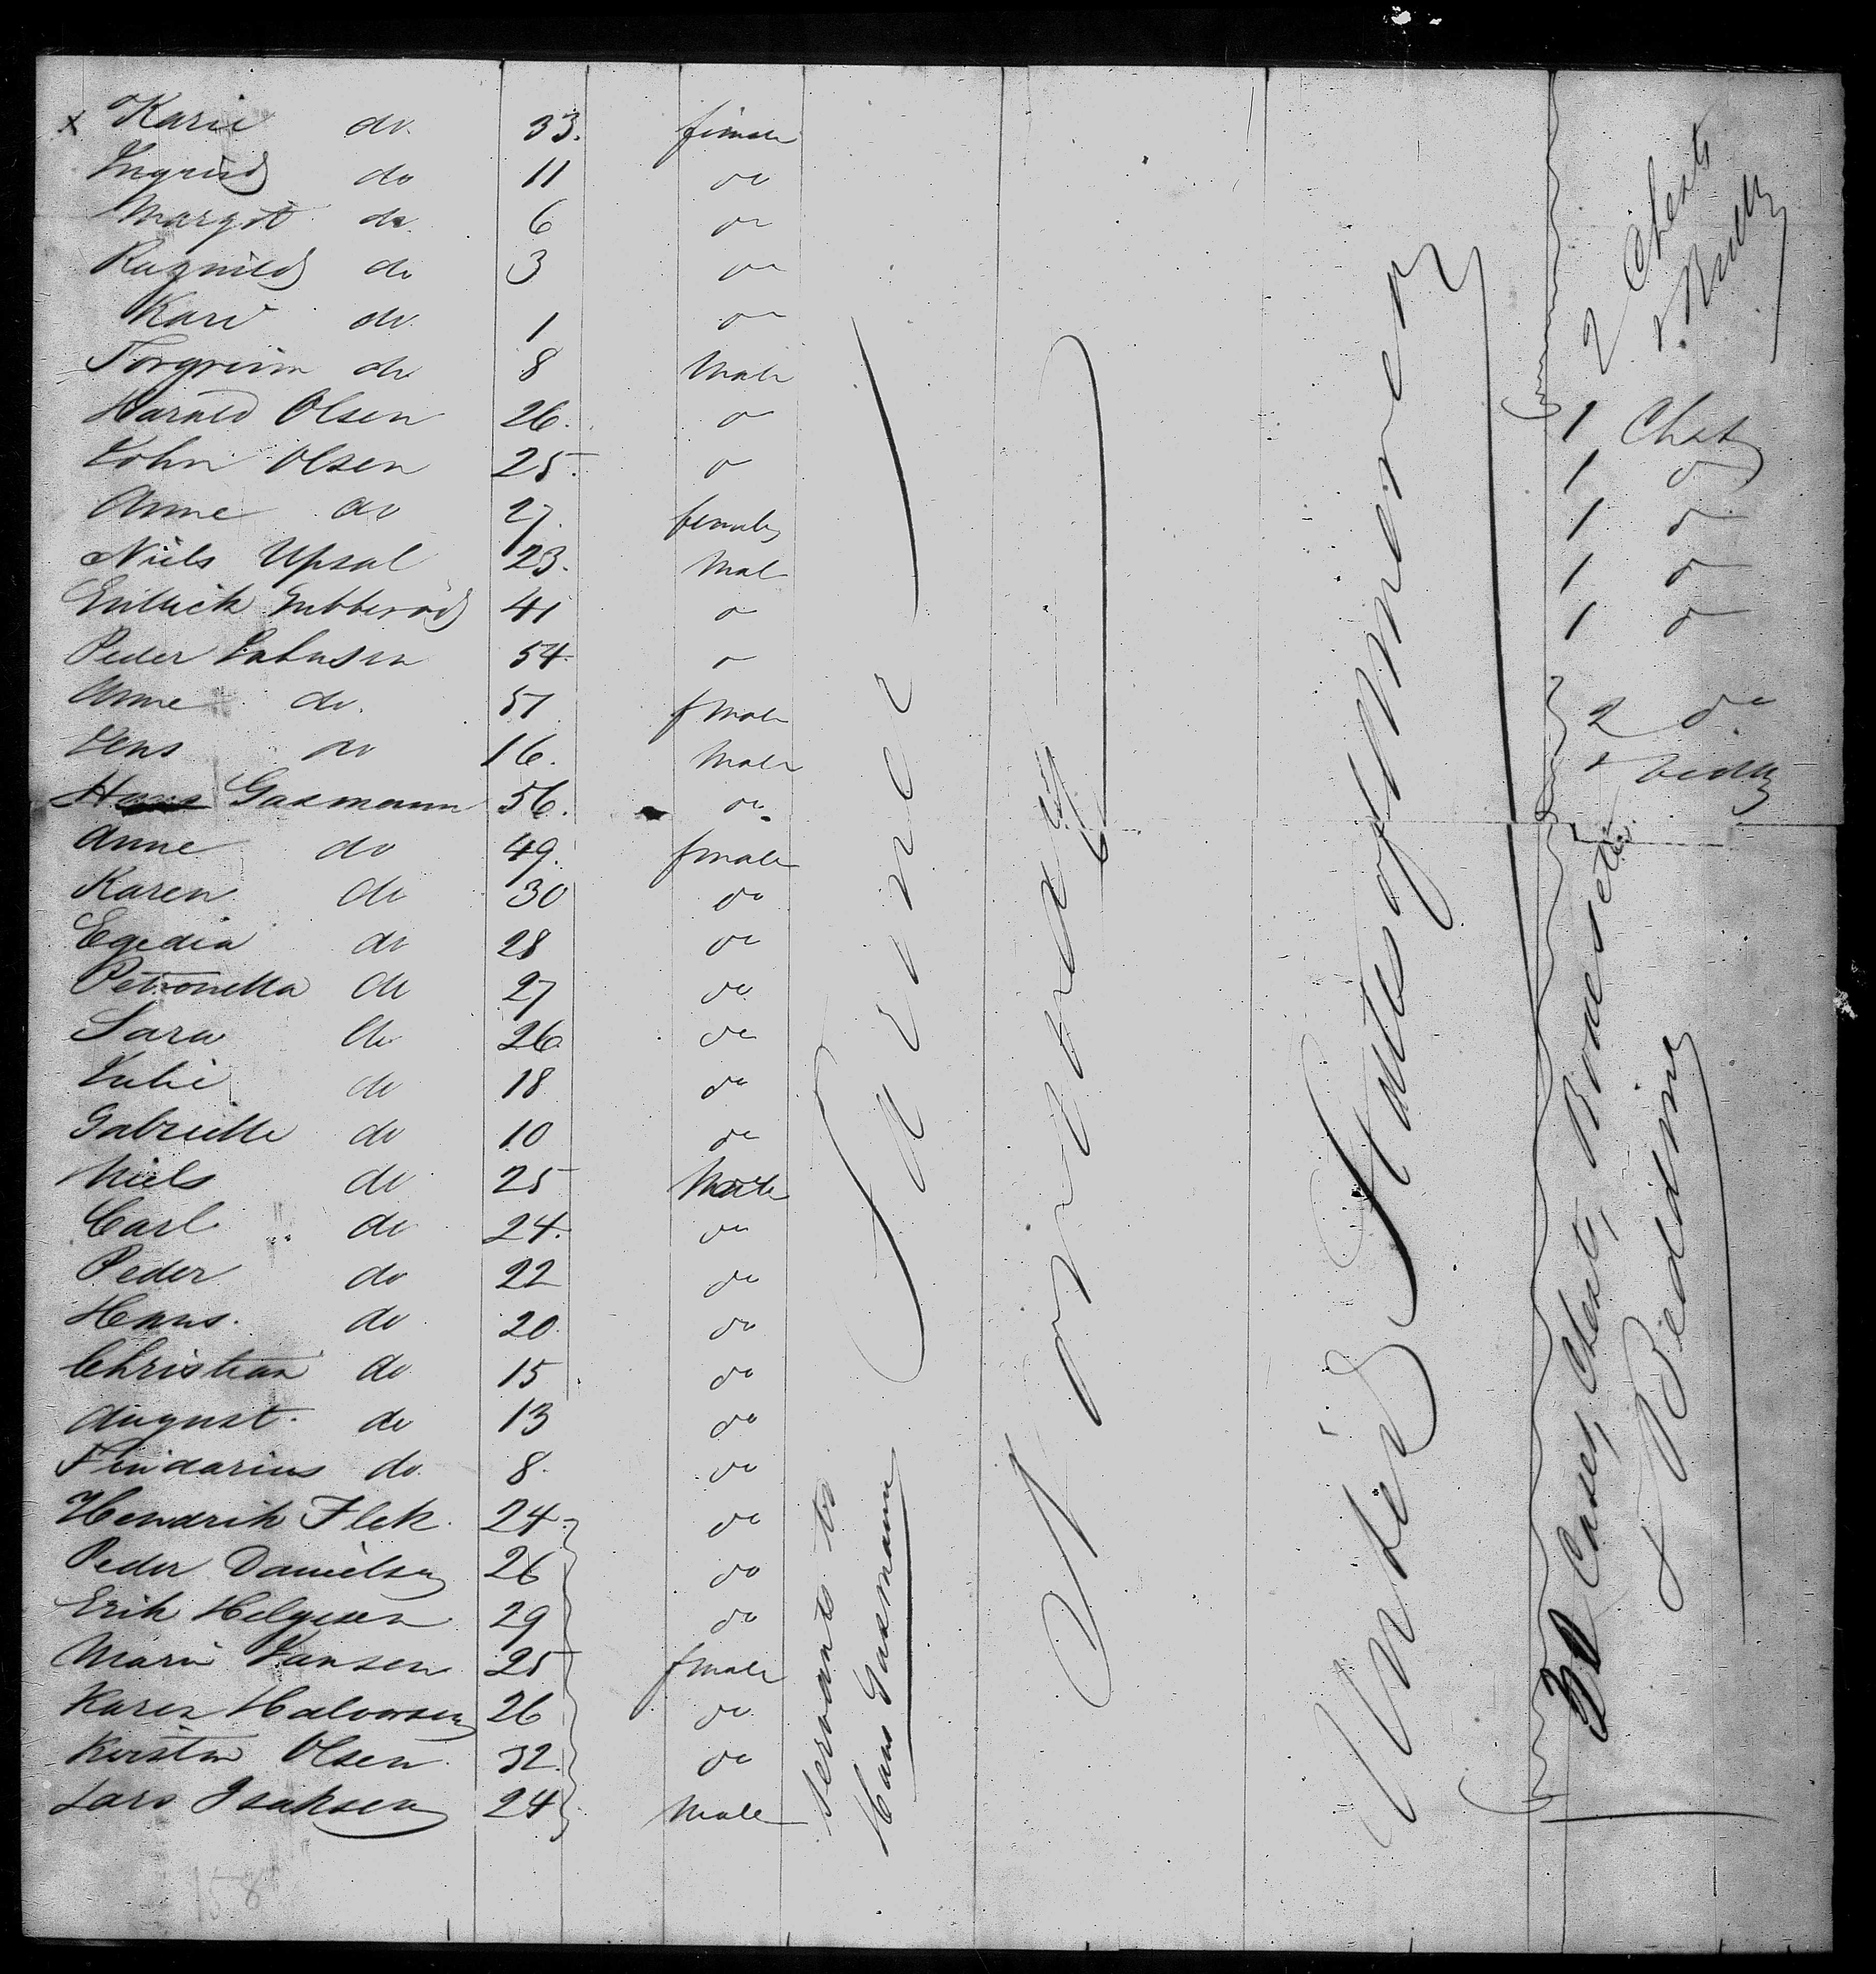 x Karie do. 33. female
Ingrid do 11 do
Margit do. 6 do
Ragnild do 3 do
Kari do. 1 do
Torgrim do 8 Male
Harald Olsen 26. do 1 Chest
John Olsen 25. do 1 do
Anne do 27. female 1 do
Niels Upsal 23. Mal 1 do
41 do 1 do
Peder 54. do
Anne do. 51 fmale 2 do
Jens do 16. Male & Bedding
Hans Gasmann 56. do.
Anne do 49. fmale
Karen do 30 do
Egedia do 28 do
Petronella do 27 do
Sara do 26 do
Julie do 18 do
Gabrielle do 10 do
Niels do 25 Male
Carl do 24. do
Peder do 22 do
Hans. do 20. do
Christian do 15 do
August. do 13 do
do. 8. do
Hendrik Flek. 24. do
Peder Danielsen 26 do
Erik Helgesen 29 do
Marie Jansen 25 fmale
Karen Halvorsen 26 do
Kirstin Olsen 32. do
Lars Isaksen 24 Male
Servants to
Hans Gasmann
Farmer
Norway
United States of America
2 Chests
& Bedding
30 Cases, Chests, Boxes etc.
& Bedding
158